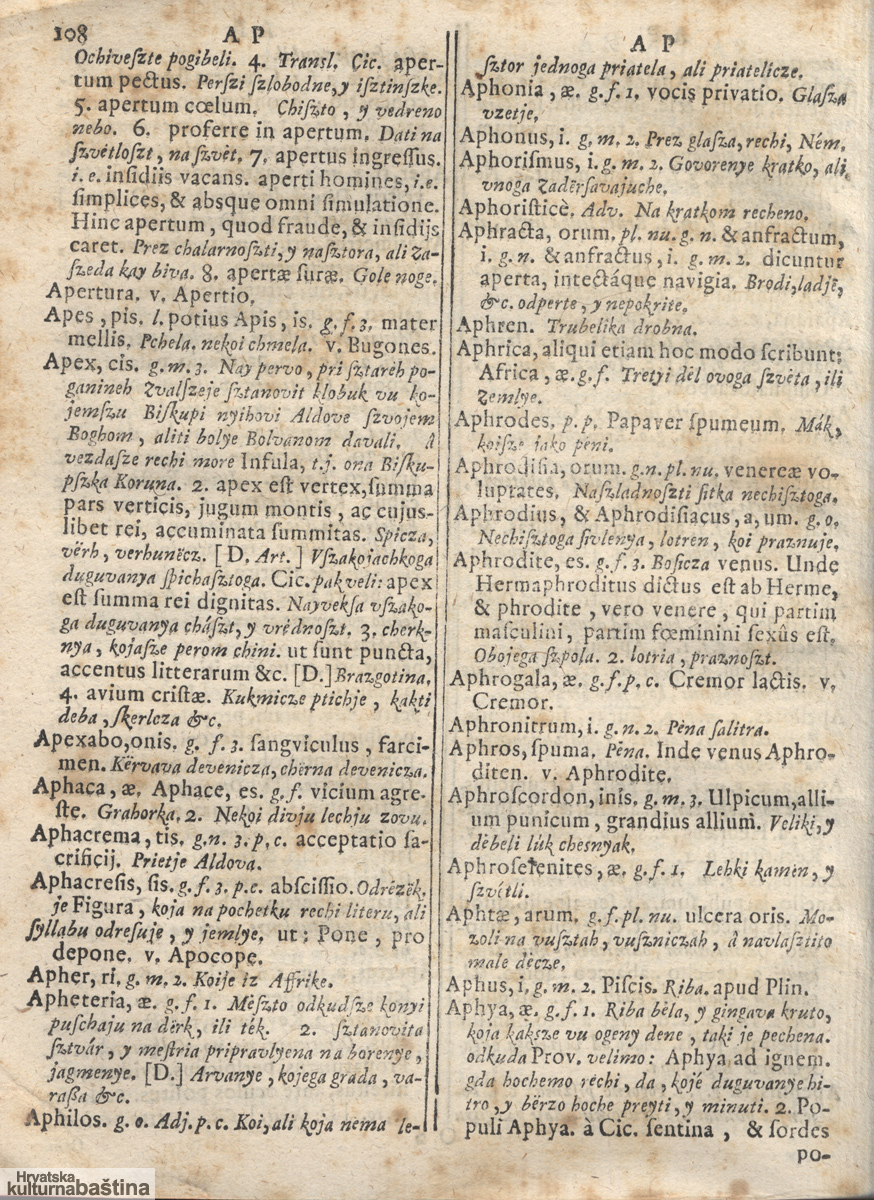 108 A P
Ochiveſzte pogibeli. 4. Transl. Cic. aper-
tum pectus. Perſzi ſzlobodne, y iſztinſzke.
5. apertum cœlum. Chiſzto, y vedreno
nebo. 6. proferre in apertum. Dati na
ſzvètloſzt, na ſzvèt. 7. apertus ingreſſus.
i. e. inſidiis vacans. aperti homines, i.e.
ſimplices, & absque omni ſimulatione.
Hinc apertum, quod fraude, & inſidijs
caret. Prez chalarnoſzti, y naſztora, ali Za-
ſzeda kay biva. 8. apertæ ſuræ. Gole noge.
Apertura. v. Apertio.
Apes, pis. l. potius Apis, is. g. f. 3. mater
mellis. Pchela. nekoi chmela. v. Bugones.
Apex, cis. g. m. 3. Nay pervo, pri ſztarèh po-
ganineh Zvalſzeje ſztanovit klobuk vu ko-
jemſzu Biſkupi nyihovi Aldove ſzvojem
Boghom, aliti bolye Bolvanom davali. à
vezdaſze rechi more Infula, t.j. ona Biſku-
pſzka Koruna. 2. apex eſt vertex, ſumma
pars verticis, jugum montis, ac cujus-
libet rei, accuminata ſummitas. Spicza,
vèrh, verhunëcz. [D. Art.] Vſzakojachkoga
duguvanya ſpichaſztoga. Cic. pak veli: apex
eſt ſumma rei dignitas. Nayvekſa vſzako-
ga duguvanya cháſzt, y vrèdnoſzt. 3. cherk-
nya, kojaſze perom chini. ut ſunt puncta,
accentus litterarum &c. [D.] Brazgotina.
4. avium criſtæ. Kukmicze ptichje, kakti
deba, ſkerlcza &c.
Apexabo, onis. g. f. 3. ſangviculus, farci-
men. Kërvava devenicza, chërna devenicza.
Aphaca, æ. Aphace, es. g. f. vicium agre-
ſte. Grahorka. 2. Nekoi divju lechju zovu.
Aphacrema, tis. g. n. 3. p. c. acceptatio ſa-
crificij. Prietje Aldova.
Aphacreſis, ſis. g. f. 3. p. c. abſciſſio. Odrèzëk.
je Figura, koja na pochetku rechi literu, ali
ſyllabu odreſuje, y jemlye. ut; Pone, pro
depone. v. Apocope.
Apher, ri. g. m. 2. Koije iz Affrike.
Apheteria, æ. g. f. 1. Mèſzto odkudſze konyi
puſchaju na dèrk, ili tèk. 2. ſztanovita
ſztvár, y meſtria pripravlyena na borenye,
jagmenye. [D.] Arvanye, kojega grada, va-
raßa &c.
Aphilos. g. o. Adj. p. c. Koi, ali koja nema le-
A P
ſztor jednoga priatela, ali priatelicze.
Aphonia, æ. g. f. 1. vocis privatio. Glaſza
vzetje.
Aphonus, i. g. m. 2. Prez glaſza, rechi, Ném.
Aphoriſmus, i. g. m. 2. Govorenye kratko, ali
vnoga Zadërſavajuche.
Aphoriſticè. Adv. Na kratkom recheno.
Aphracta, orum. pl. nu. g. n. & anfractum,
i. g. n. & anfractus, i. g. m. 2. dicuntur
aperta, intectáque navigia. Brodi, ladjë,
&c. odperte, y nepokrite.
Aphren. Trubelika drobna.
Aphrica, aliqui etiam hoc modo ſcribunt;
Africa, æ. g. f. Tretyi dèl ovoga ſzvèta, ili
Zemlye.
Aphrodes. p. p. Papaver ſpumeum. Mák,
koiſze jako pèni.
Aphrodiſia, orum. g. n. pl. nu. venereæ vo-
luptates. Naſzladnoſzti ſitka nechiſztoga.
Aphrodius, & Aphrodiſiacus, a, um. g. o.
Nechiſztoga ſivlenya, lotren, koi praznuje.
Aphrodite, es. g. f. 3. Boſicza venus. Unde
Hermaphroditus dictus eſt ab Herme,
& phrodite, vero venere, qui partim
maſculini, partim fœminini ſexûs eſt.
Obojega ſzpola. 2. lotria, praznoſzt.
Aphrogala, æ. g. f. p. c. Cremor lactis. v.
Cremor.
Aphronitrum, i. g. n. 2. Pèna ſalitra.
Aphros, ſpuma. Pèna. Inde venus Aphro-
diten. v. Aphrodite.
Aphroſcordon, inis. g. m. 3. Ulpicum, alli-
um punicum, grandius allium. Veliki, y
dèbeli lúk chesnyak.
Aphroſeſenites, æ. g. f. 1. Lehki kamèn, y
ſzvítli.
Aphtæ, arum. g. f. pl. nu. ulcera oris. Mo-
zoli na vuſztah, vuſzniczah, à navlaſztito
male dècze.
Aphus, i. g. m. 2. Piſcis. Riba. apud Plin.
Aphya, æ. g. f. 1. Riba bèla, y gingava kruto,
koja kakſze vu ogeny dene, taki je pechena.
odkuda Prov. velimo: Aphya ad ignem.
gda hochemo rechi, da, kojé duguvanye hi-
tro, y bërzo hoche preyti, y minuti. 2. Po-
puli Aphya. à Cic. ſentina, & ſordes
po-
Hrvatska
kulturnabaština